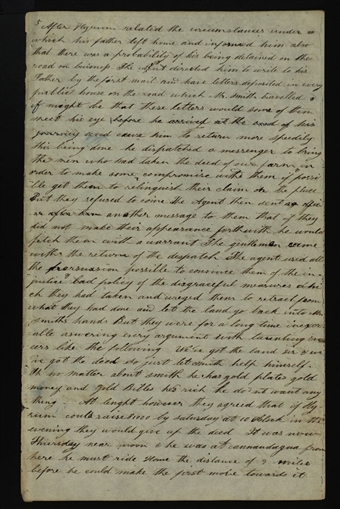 After Hyrum related the circumstances under
which his father left home and informed him also
that there was a probability of his being detained on the
road on buisness. The agent directed him to write to his
Father by the first mail and have letters deposited in every
publick house on the road which Mr. Smith travelled
it might be that these letters would some of them
meet his eye before he arrived at the end of his
journey and cause him to return more speedily
this being done he dispatched a messenger to bring
the men who had taken the deed of our farm in
order to make some compromise with them if possi
ble get them to relinquish their claim on the place
But they refused to come the Agent then sent
another message to them that if they
did not make their appearance forthwith he would
fetch them with a warrant The gentlemen come
with the return of the dispatch The agent used all
the persuasion possible to convince them of the in
justice bad policy of the disgraceful measures whi
ch they had taken and urged them to retract from
what they had done and let the land go back into Mr
Smiths hands But they were for a long time inexor
able answering every argument with taunting
like the following We've got the land sir
've got the deed so just let smith help himself
Oh no matter about smith he has gold plates gold
money and Gold Bibles he's rich he do nt want any
thing At lenght however they agreed that if Hy
rum could raise by saturday at 10 oclock in the
evening they would give up the deed It was now
Thursday near noon & he was at canandagua from
here he must ride Home the distance of 9 miles
before he could make the first move towards it